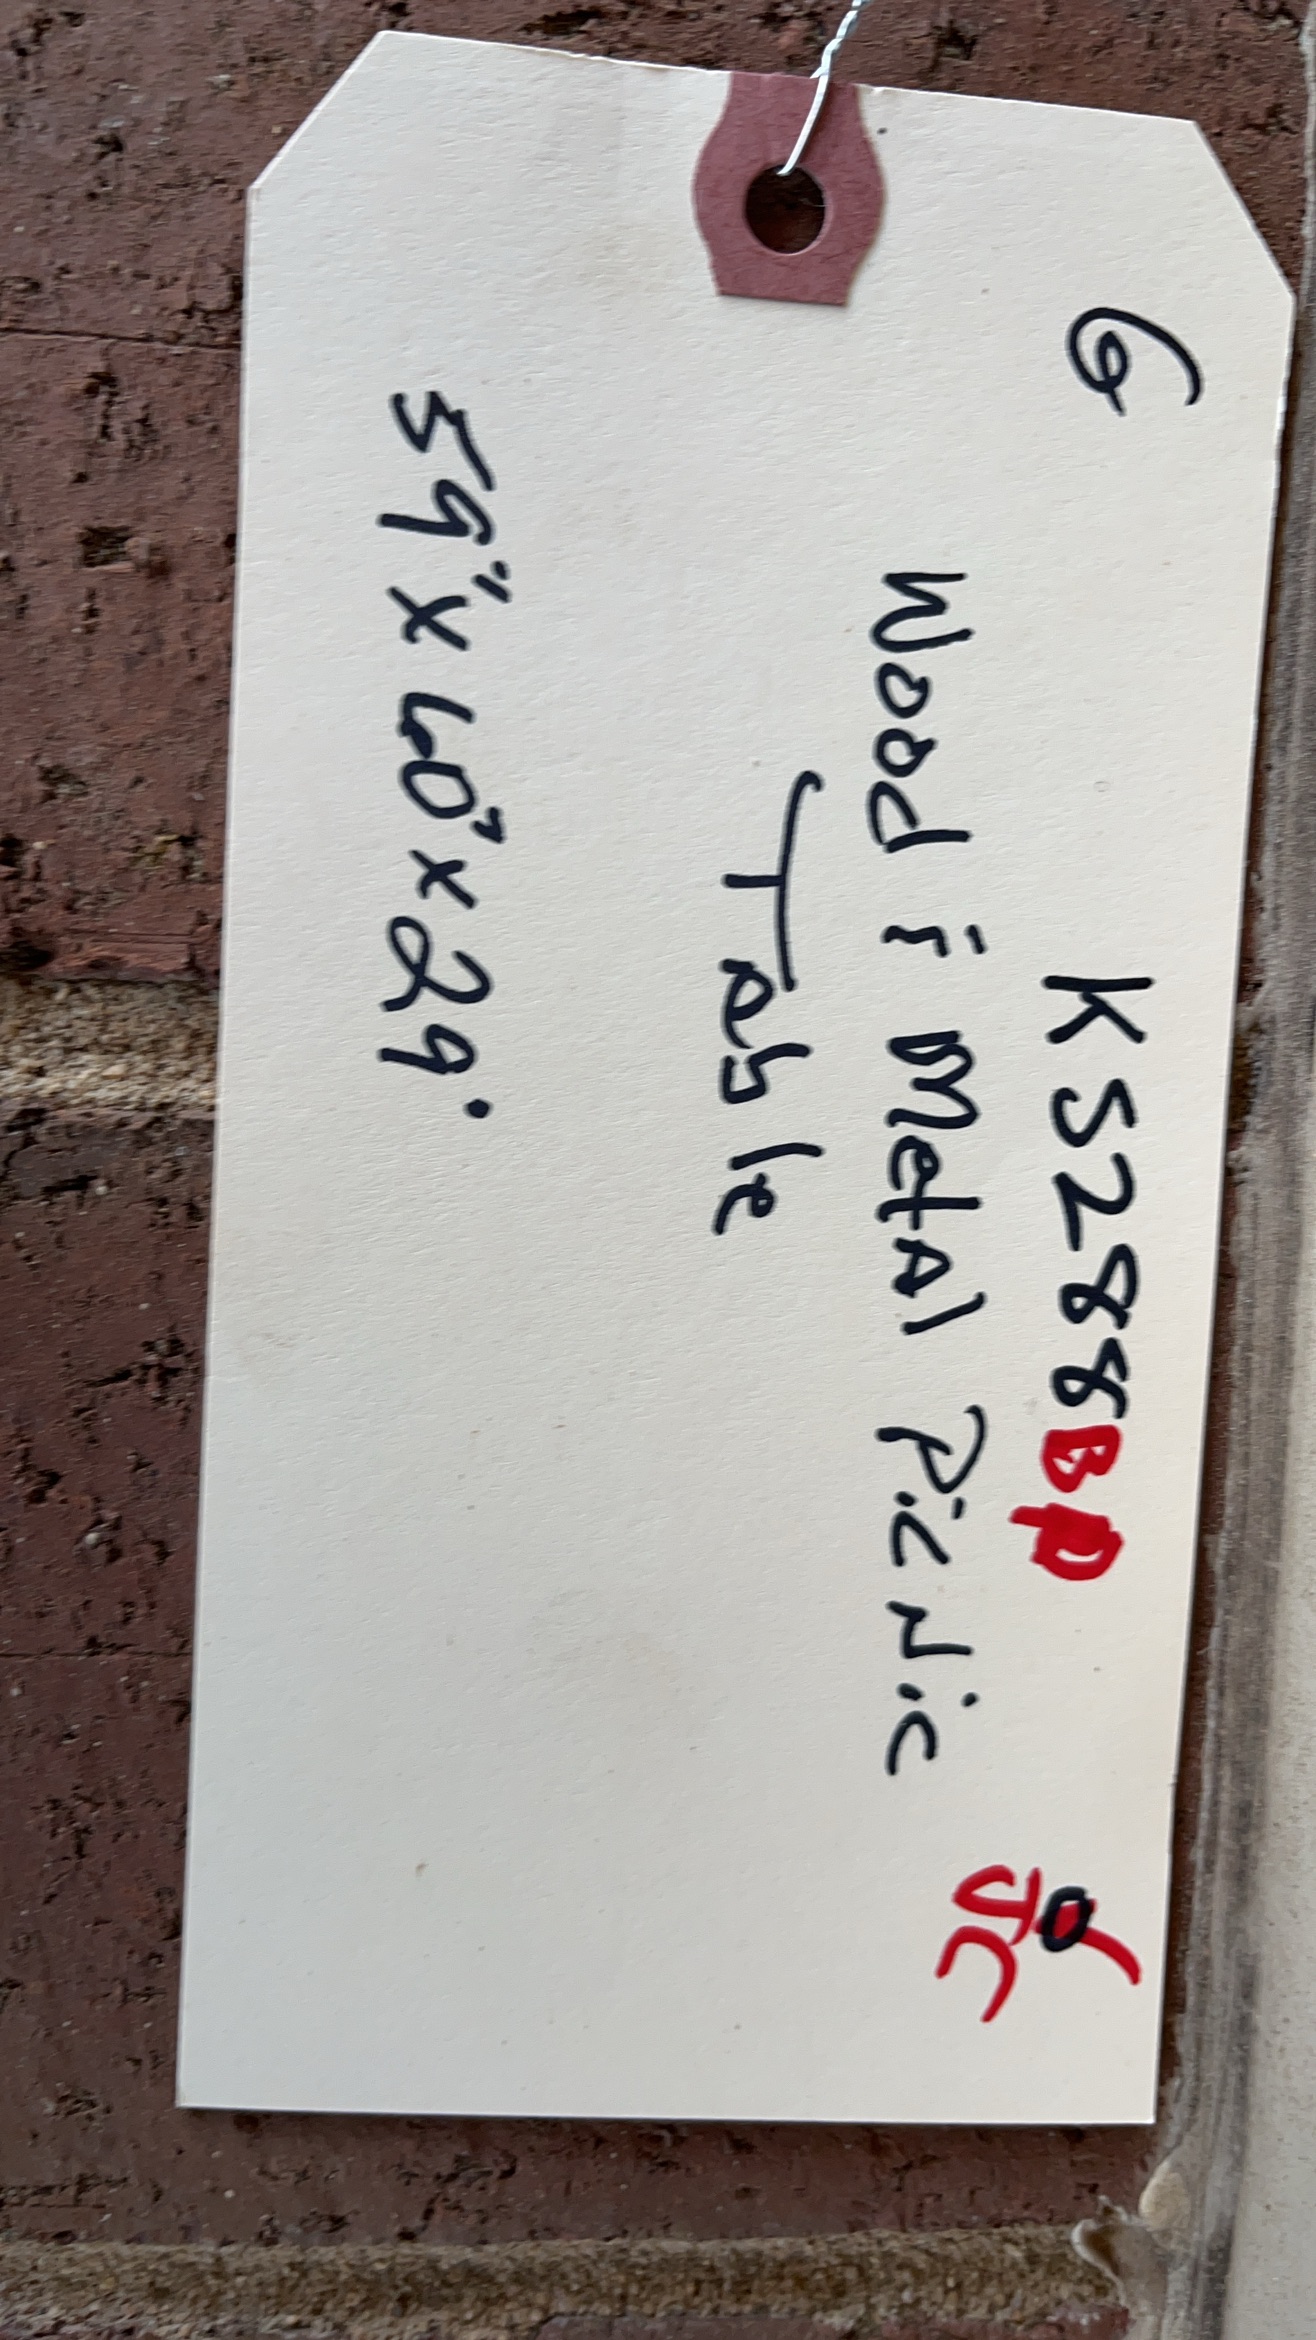 G KS2888BP
Wood & Metal Picnic
Table
59" x 60" x 29"
JC